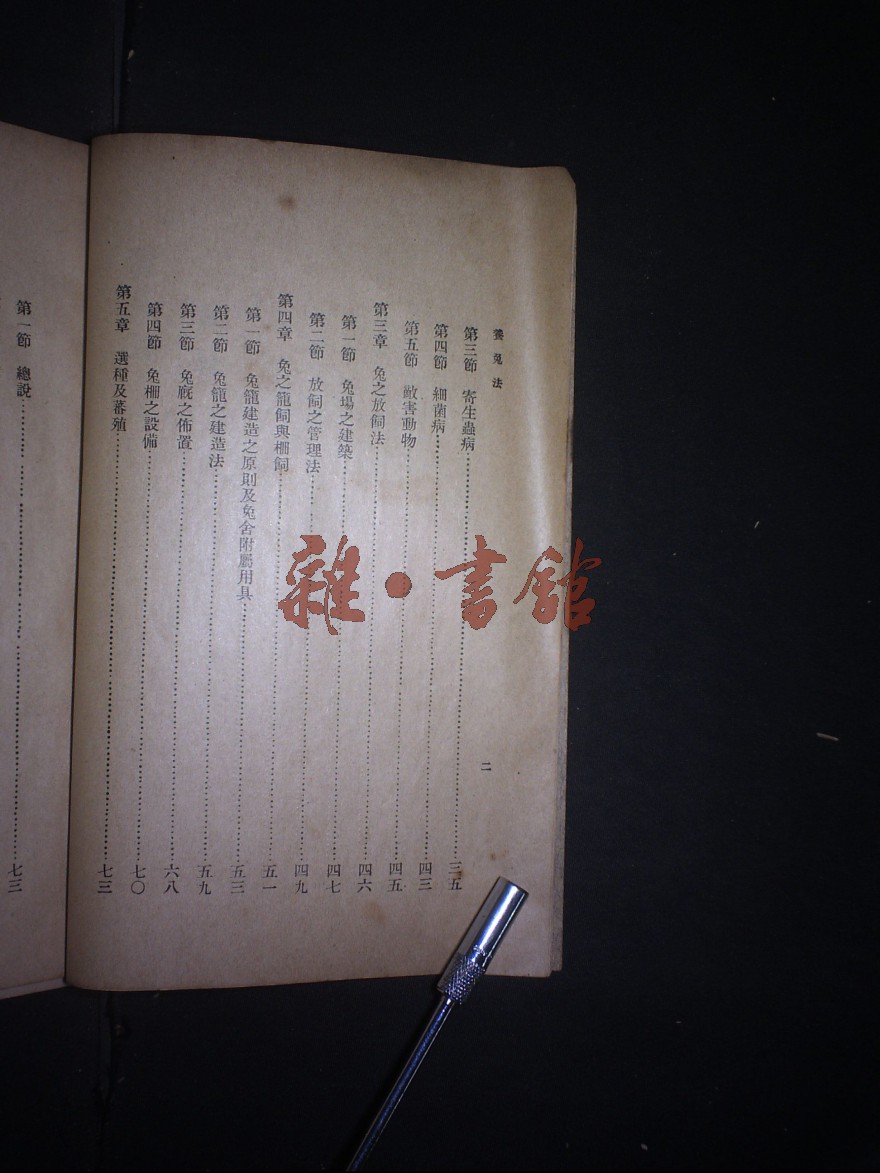 養兔法
二
第三節 寄生蟲病…………三五
第四節 細菌病…………四三
第五節 敵害動物…………四五
第三章 兔之放飼法…………四六
第一節 兔場之建築…………四七
第二節 放飼之管理法…………四九
第四章 兔之籠飼與柵飼…………五一
第一節 兔籠建造之原則及兔舍附屬用具…………五三
第二節 兔籠之建造法…………五九
第三節 兔廐之佈置…………六八
第四節 兔柵之設備…………七〇
第五章 選種及蕃殖…………七三
第一節 總說…………七三
雜·書館